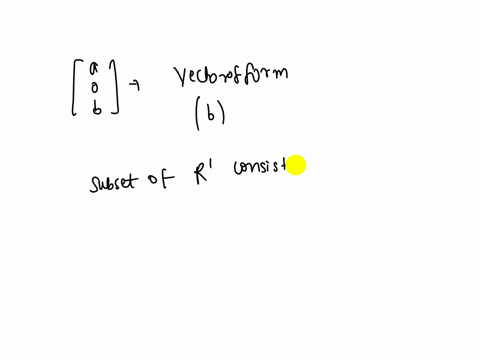 [a 0 b] → vector of form
(b)
subset of R' consist